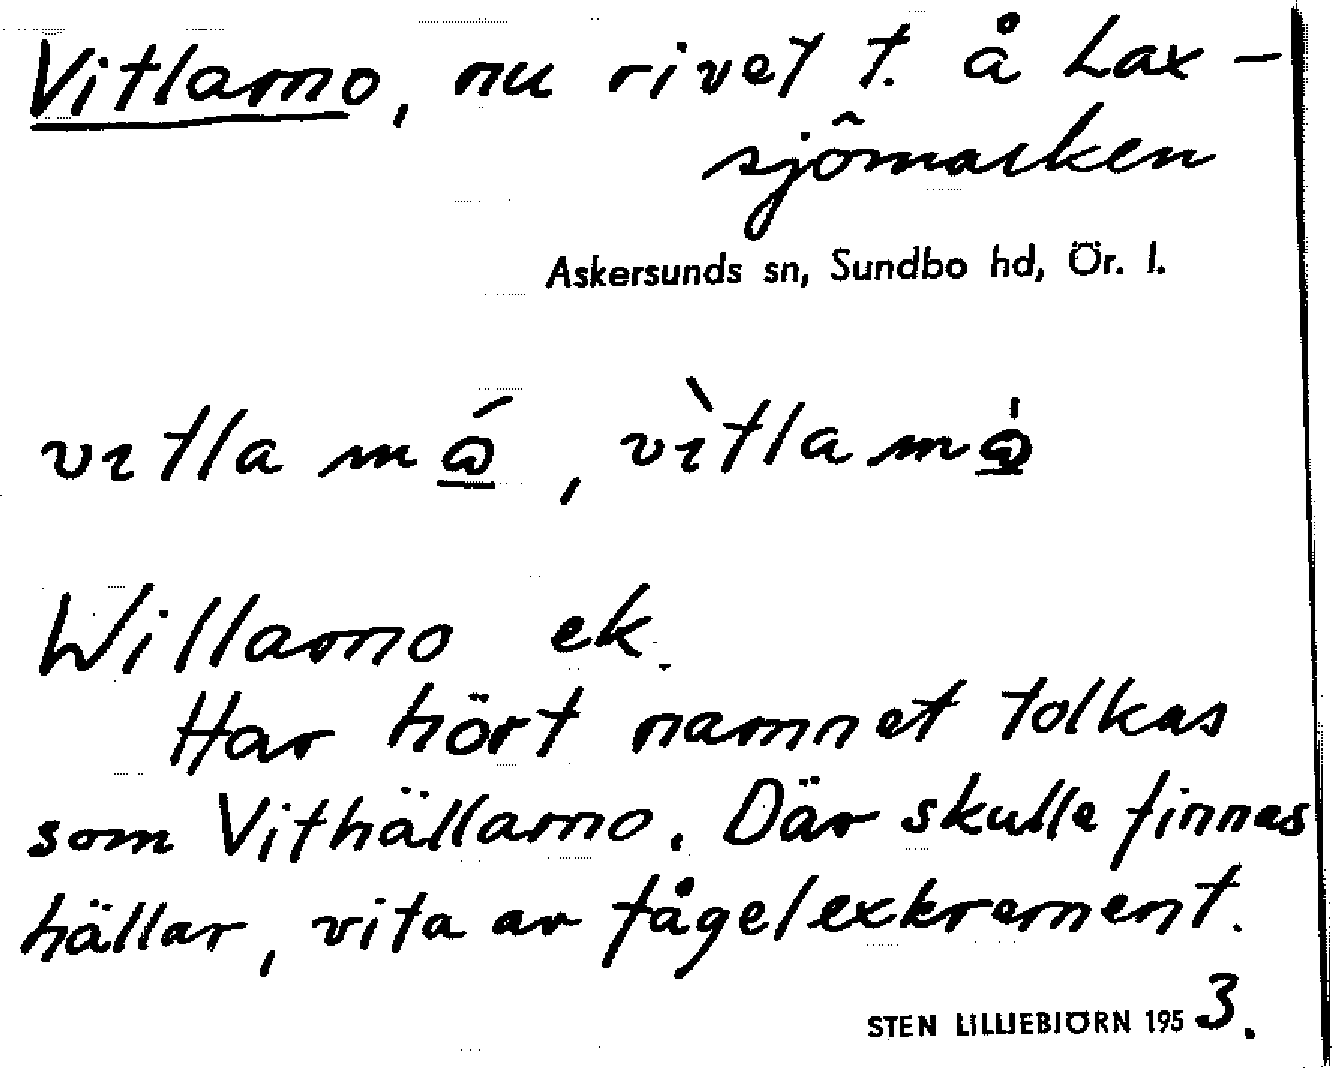 Vitlamo, nu rivet t. å Lax-
sjömarken
Askersunds sn, Sundbo hd, Ör. l.
vɩtlamǻ, vɩ̀tlamå̍
Willamo ek.
Har hört namnet tolkas
som Vithällamo. Där skulle finnas
hällar, vita av fågelexkrement.
STEN LILLIEBJÖRN 1953.